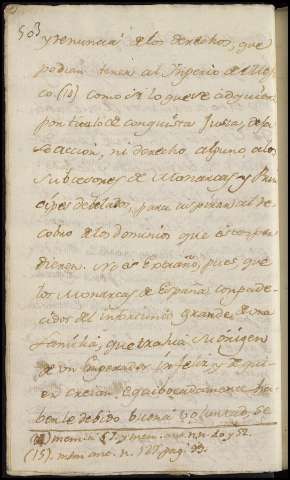 503
y renuncia de los derechos, que
podian tener al Imperio de Mexi
co (14) como es lo que se adquiere
por titulo de conquista Justa, de la
accion, ni derecho alguno a los
subcesores de Monarcas y Prin
cipes debelados, para aspirar al re
cobro de los dominios que
dieron. No es extraño, pues, que
los Monarcas de España compade
cidos del infortunio grande de una
familia, que trahia su origen
de un Emperador infeliz y de quien
creian equibocadamente ha
berle debido buena voluntad, se
(14) mem. n. 57. y mem. anc. n. n. 20. y 52.
(15). mem anc. n. 127. pag. 99.